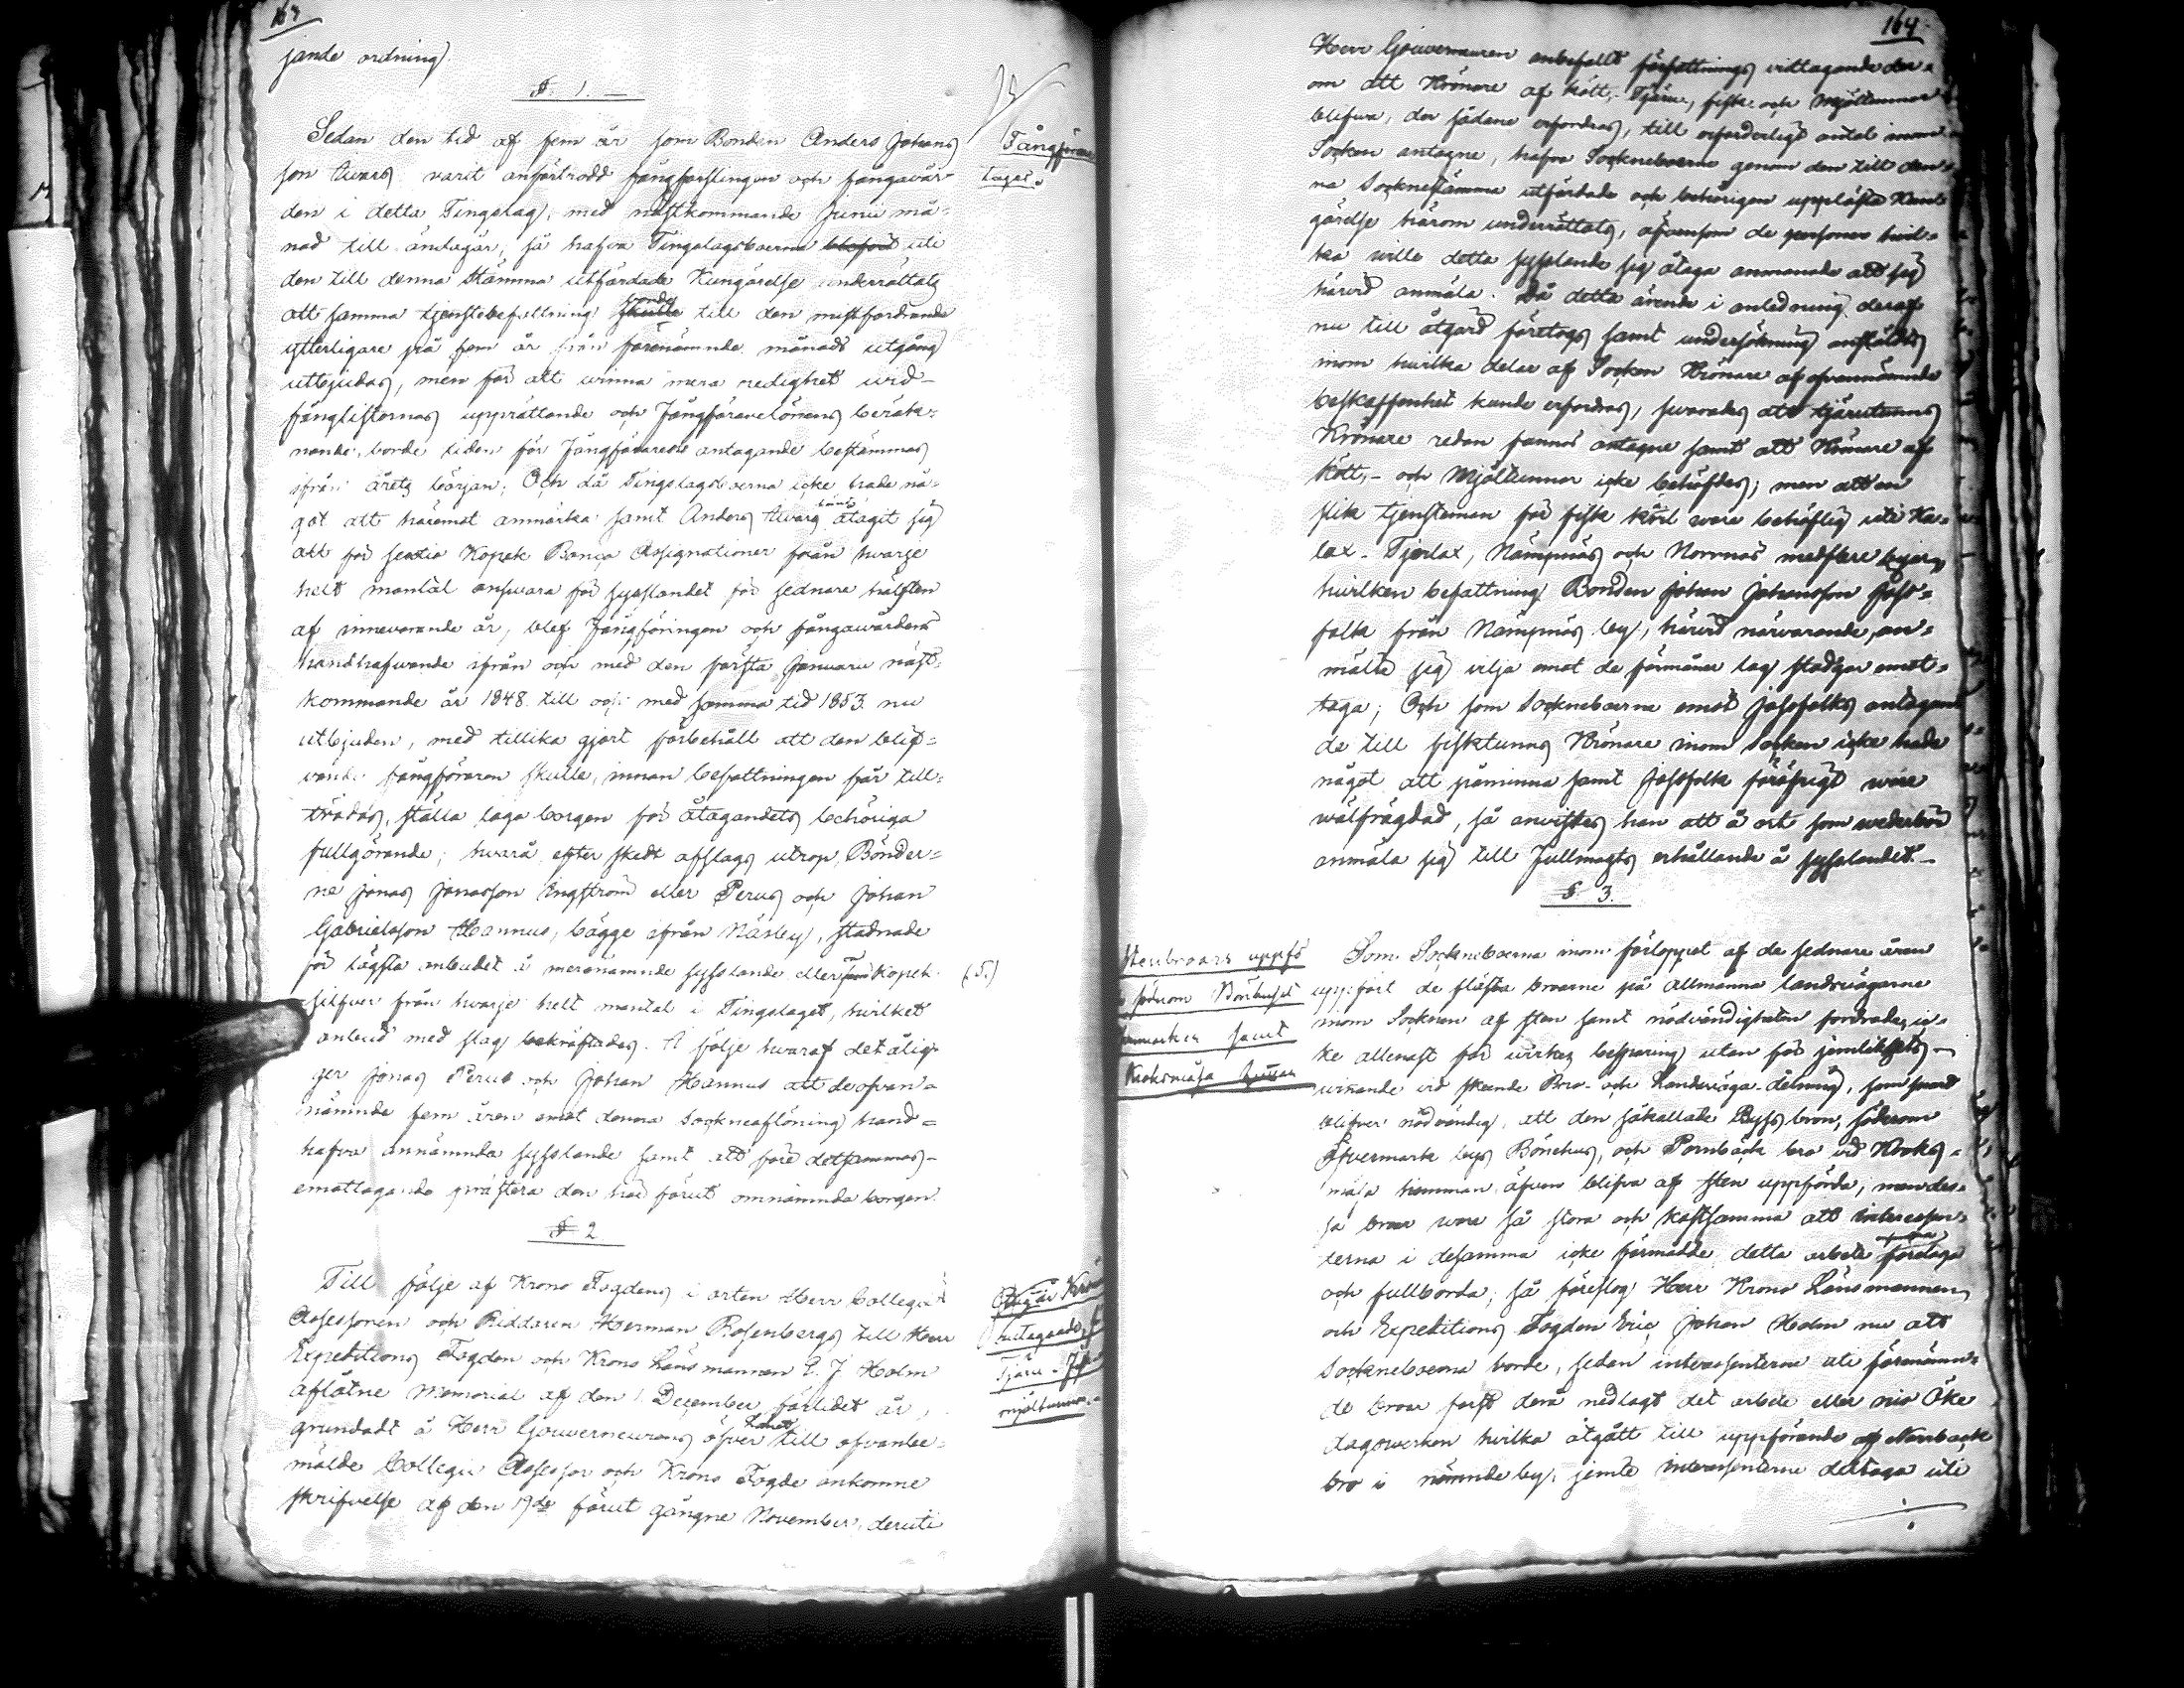 163
jande ordning.
§. 1.
Sedan den tid af fem år som Bonden Anders Johans
son Awars varit anförtrodd fångforslingen och fångavår-
den i detta Tingslag, med nästkommande Junii må-
nad till ändagår, så hafva Tingslagsboerne blifvit uti
den till denna Stämma utfärdade Kungörelse underrättats
att samma tjenstebefattning skulle till den minstfordrande
ytterligare på fem år från förenämnde månads utgång
utbjudas, men för att winna mera redighet wid
fånglistornas upprättande och Fångförarelönens beräk-
nande, borde tiden för Fångförarens antagande bestämmas
ifrån årets början; Och då Tingslagsboerna icke hade nå-
got att häremot anmärka samt Anders Awars åtagit sig
att för sextio Kopek Banco Assignationer från hwarje
helt mantal answara för sysslandet för sednare hälften
af innevarande år, blef Fångföringen och fångawårdens
handhafwande ifrån och med den första Januari näst-
kommande år 1848 till och med samma tid 1853 nu
utbjuden, med tillika gjort förbehåll att den blif-
vande fångföraren skulle, innan befattningen får till-
trädas, ställa laga borgen för åtagandets behöriga
fullgörande; hwarå efter skedt afslags utrop, Bönder-
ne Jonas Jonasson Ingström eller Perus och Johan
Gabrielsson Hannus, bägge ifrån Näsby, stadnade
för lägsta anbudet å meranämnde sysslande eller Kopek (5.)
silfver från hwarje helt mantal i Tingslaget, hvilket
anbud med slag bekräftades. I följe hwaraf det ålig-
ger Jonas Perus och Johan Hannus att de ofvan-
nämnde fem åren emot denna Sockneaflöning hand-
hafva annämnda sysslande samt att före detsammas
emottagande præstera den här förut omnämnda borgen.
Fångförare
laget.
§ 2
Till följe af Krono Fogdens i orten Herr Collegii
Assessoren och Riddaren Herman Rosenbergs till Herr
Expeditions Fogden och Krono Länsmannen E. J. Holm
aflåtne Memorial af den 1 December förlidet år,
grundadt å Herr Gouverneurens öfver till ofvanbe-
mälde Collegii Assessor och Krono Fogde ankomne
skrifvelse af den 19de förut gångne November, deruti
antagande
Tjäru-
mjöltunnor
164
Herr Gouverneuren anbefallt författnings vidtagande der-
om att Krönare af kött-, Tjäru-, fisk- och Mjöltunnor
blifwa, der sådane erfordras, till erforderligt antal inom
Socken antagne, hafva Sockneboerne genom den till den-
na Socknestämma utfärdade och behörigen uppläste Kun-
görelse härom underrättats, äfvensom de personer hvil-
ka wille detta sysslande sig åtaga anmanade att sig
härvid anmäla. Då detta ärende i anledning deraf
nu till åtgärd företogs samt undersökning anställdes
inom hvilka delar af Socken Krönare af ofvannämnde
beskaffenhet kunde erfordras, svarades att tjärutunns
Krönare redan fanns antagne samt att Krönare af
kött- och Mjöltunnor icke behöfdes; men att en
slik tjensteman för fisk kärl wore behöflig uti Ka-
lax-Tjerlax, Nämpnäs och Norrnäs medflere byar,
hvilken befattning Bonden Johan Johansson Joss-
folk från Nämpnäs by, härvid närvarande, an-
mälte sig vilja emot de förmåner lag stadgar emot-
taga; Och som Sockneboerna emot Jossfolks antagan-
de till fisktunns Krönare inom Socken icke hade
något att påminna samt Jossfolk föröfrigt wore
wälfrägdad, så anvistes han att å ort som wederbör
anmäla sig till Fullmagts erhållande å sysslandet.
§ 3.
Som Sockneboerna inom förloppet af de sednare åren
uppfört de flästa broarne på allmänna landsvägarne
inom Socknen af sten samt nödvändigheten fordrade, ic-
ke allenast för wirkes besparing utan för jemlikhets
winnande vid skeende Bro- och Landsväga-delning, som snart
blifver nödvändig, att den såkallade Byss bron, söderom
Öfvermark bys Bönehus, och Pornbäck bro vid Kroks-
mäsa hemman äfven blifva af sten uppförda; men des-
sa broar wore så stora och kostsamma att interessen-
terna i desamma icke förmådde detta arbete företaga
och fullborda; så föreslog Herr Krono Länsmannen
och Expeditions Fogden Eric Johan Holm nu att
Sockneboerna borde, sedan interessenterne uti förenämn-
de broar först derå nedlagt det arbete eller nio Öke
dagsverken hvilka åtgått till uppförande af Norrback
bro i nämnde by, jemte interessenterne deltaga uti
Stenbroars uppfö
söderom Bönehuset
samt
Kroksmäsa